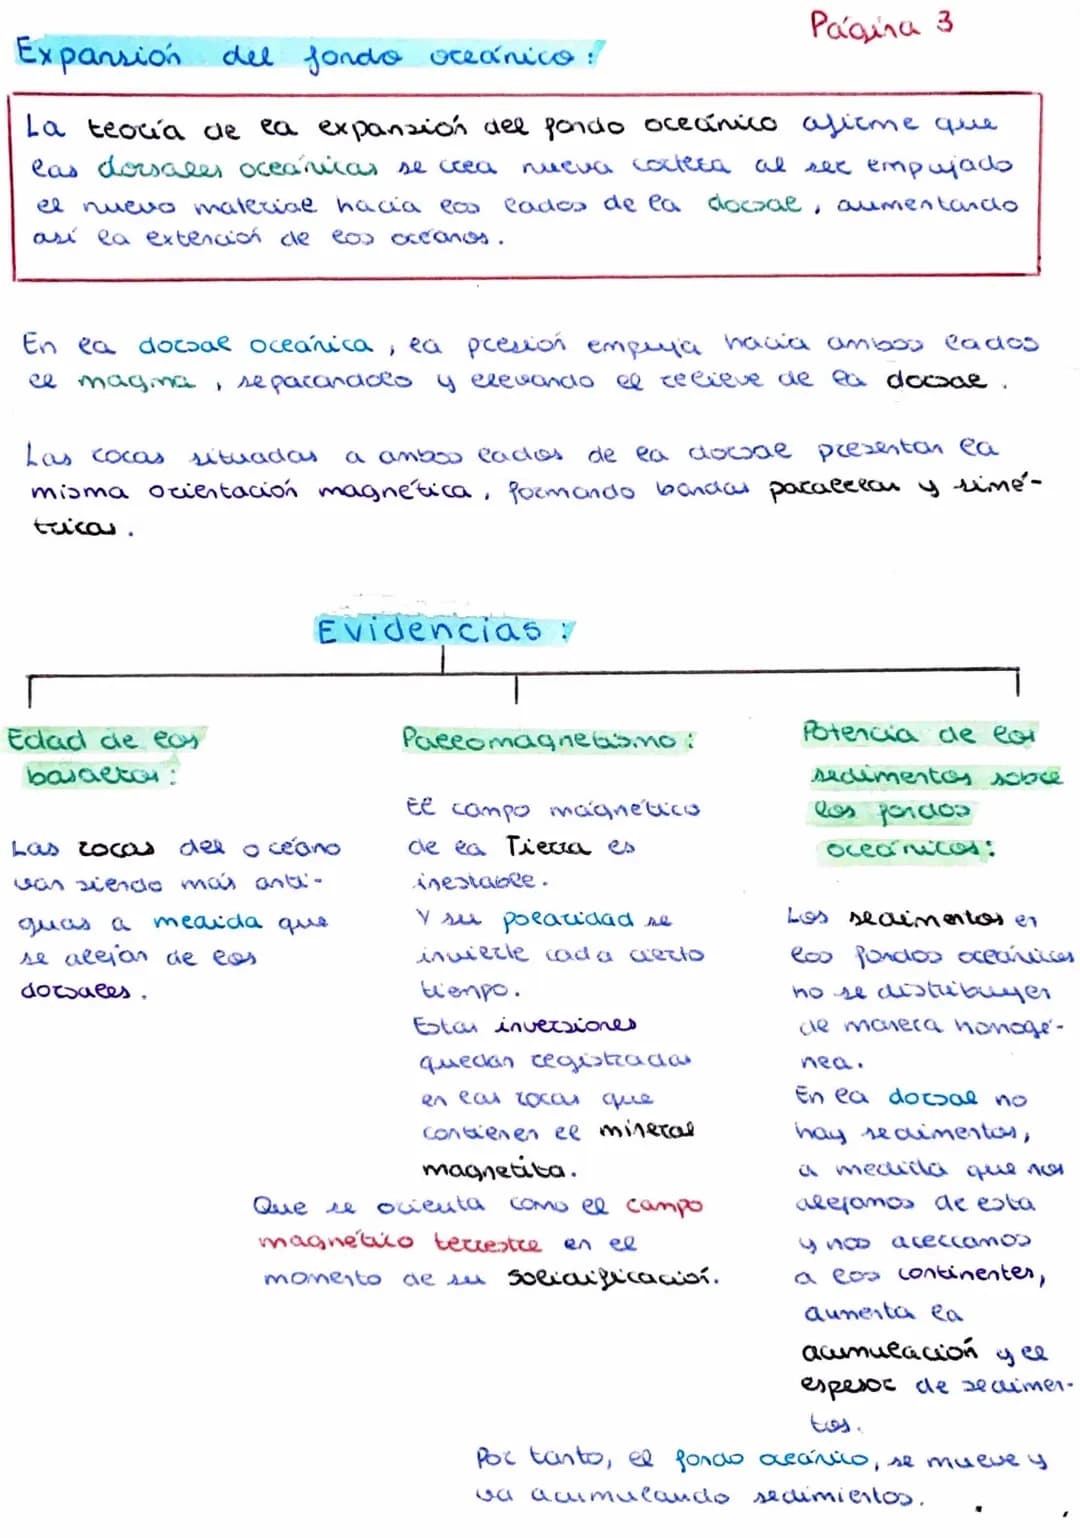 Página 3
Expansión del fondo oceánico:
La teoría de la expansión del fondo oceánico afirme que
las dorsales oceánicas se crea nueva corteza al ser empujado
el nuevo material hacia los lados de la dorsal, aumentando
así la extención de los océanos.
En la dorsal oceánica, la presión empuja hacia ambos lados
el magma, separandolo y elevando el relieve de la dorsal.
Las rocas situadas a ambos lados de la dorsal presentan la
misma orientación magnética, formando bandas paralelas y simé-
tricas.
Evidencias:
Edad de los
basaltos:
Las rocas del océano
van siendo más anti-
guas a medida que
se alejan de los
dorsales.
Paleomagnetismo:
El campo magnético
de la Tierra es
inestable.
Y su polaridad se
invierte cada cierto
tiempo.
Estas inversiones
quedan registradas
en las rocas que
contienen el mineral
magnetita.
Que se orienta como el campo
magnético terrestre en el
momento de su solidificación.
Potencia de los
sedimentos sobre
los fondos
oceánicos:
Los sedimentos en
los fondos oceánicos
no se distribuyen
de manera homogé-
nea.
En la dorsal no
hay sedimentos,
a medida que nos
alejamos de esta
y nos acercamos
a los continentes,
aumenta la
acumulación y el
espesor de sedimen-
tos.
Por tanto, el fondo oceánico, se mueve y
va acumulando sedimientos.